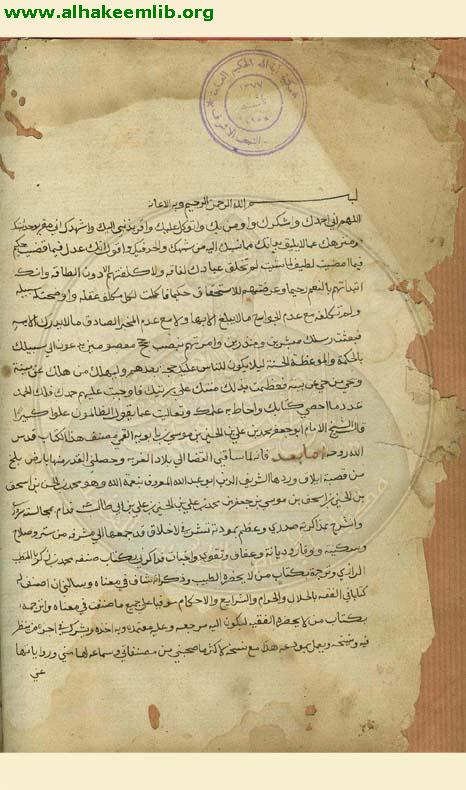 www.alhakeemlib.org
بسم الله الرحمن الرحيم وبه الاعانة
اللهم اني احمدك واشكرك واومن بك واتوكل عليك واقر بذنبي اليك واشهدك اني مقر بوحدانيتك
ومنزهك عما لا يليق بذاتك مما نسبك اليه من شبهك والحد فيك واقول انك عدل فيما قضيت حكيم
فيما امضيت لطيف لما شئت لم تخلق عبادك لفاقة ولا كلفتهم الا دون الطاقة وانك
ابتداتهم بالنعم رحيما وعرضتهم للاستحقاق حكيما فاكملت لكل مكلف عقله واوضحت له سبيله
ولم تكلف مع عدم الجوارح ما لا يبلغ الا بها ولا مع عدم المخبر الصادق ما لا يدرك الا به
فبعثت رسلك مبشرين ومنذرين وامرتهم بنصب حجج معصومين يدعون الى سبيلك
بالحكمة والموعظة الحسنة لئلا يكون للناس عليك حجة بعدهم وليهلك من هلك عن بينة
ويحيى من حي عن بينة فعظمت بذلك منتك على بريتك واوجبت عليهم حمدك فلك الحمد
عدد ما احصى كتابك واحاط به علمك وتعاليت عما يقول الظالمون علوا كبيرا
قال الشيخ الامام ابو جعفر محمد بن علي بن الحسين بن موسى بن بابويه القمي مصنف هذا الكتاب قدس
الله روحه اما بعد فانه لما ساقني القضا الى بلاد الغربة وحصلني القدر منها بارض بلخ
من قصبة ايلاق وردها الشريف الدين ابو عبد الله المعروف بنعمة الله وهو محمد بن الحسن بن اسحق
بن الحسين بن اسحق بن موسى بن جعفر بن محمد بن علي بن الحسين بن علي بن ابي طالب فدام بمجالسته سروري
وانشرح بمذاكرته صدري وعظم بمودته تشرفي لاخلاق قد جمعها الى شرفه من ستر وصلاح
وسكينة ووقار وديانة وعفاف وتقوى واخبات فذاكرني بكتاب صنفه محمد بن زكريا المتطبب
الرازي وترجمه بكتاب من لا يحضره الطبيب وذكر انه شاف في معناه وسالني ان اصنف له
كتابا في الفقه بالحلال والحرام والشرايع والاحكام موفيا على جميع ما صنفت في معناه واترجمه
بكتاب من لا يحضره الفقيه ليكون اليه مرجعه وعليه معتمده وبه اخذه ويشترك في اجره من ينظر
فيه وينسخه ويعمل بمودعه هذا مع نسخه لاكثر ما صحبني من مصنفاتي وسماعه لها مني وروايتها
عني